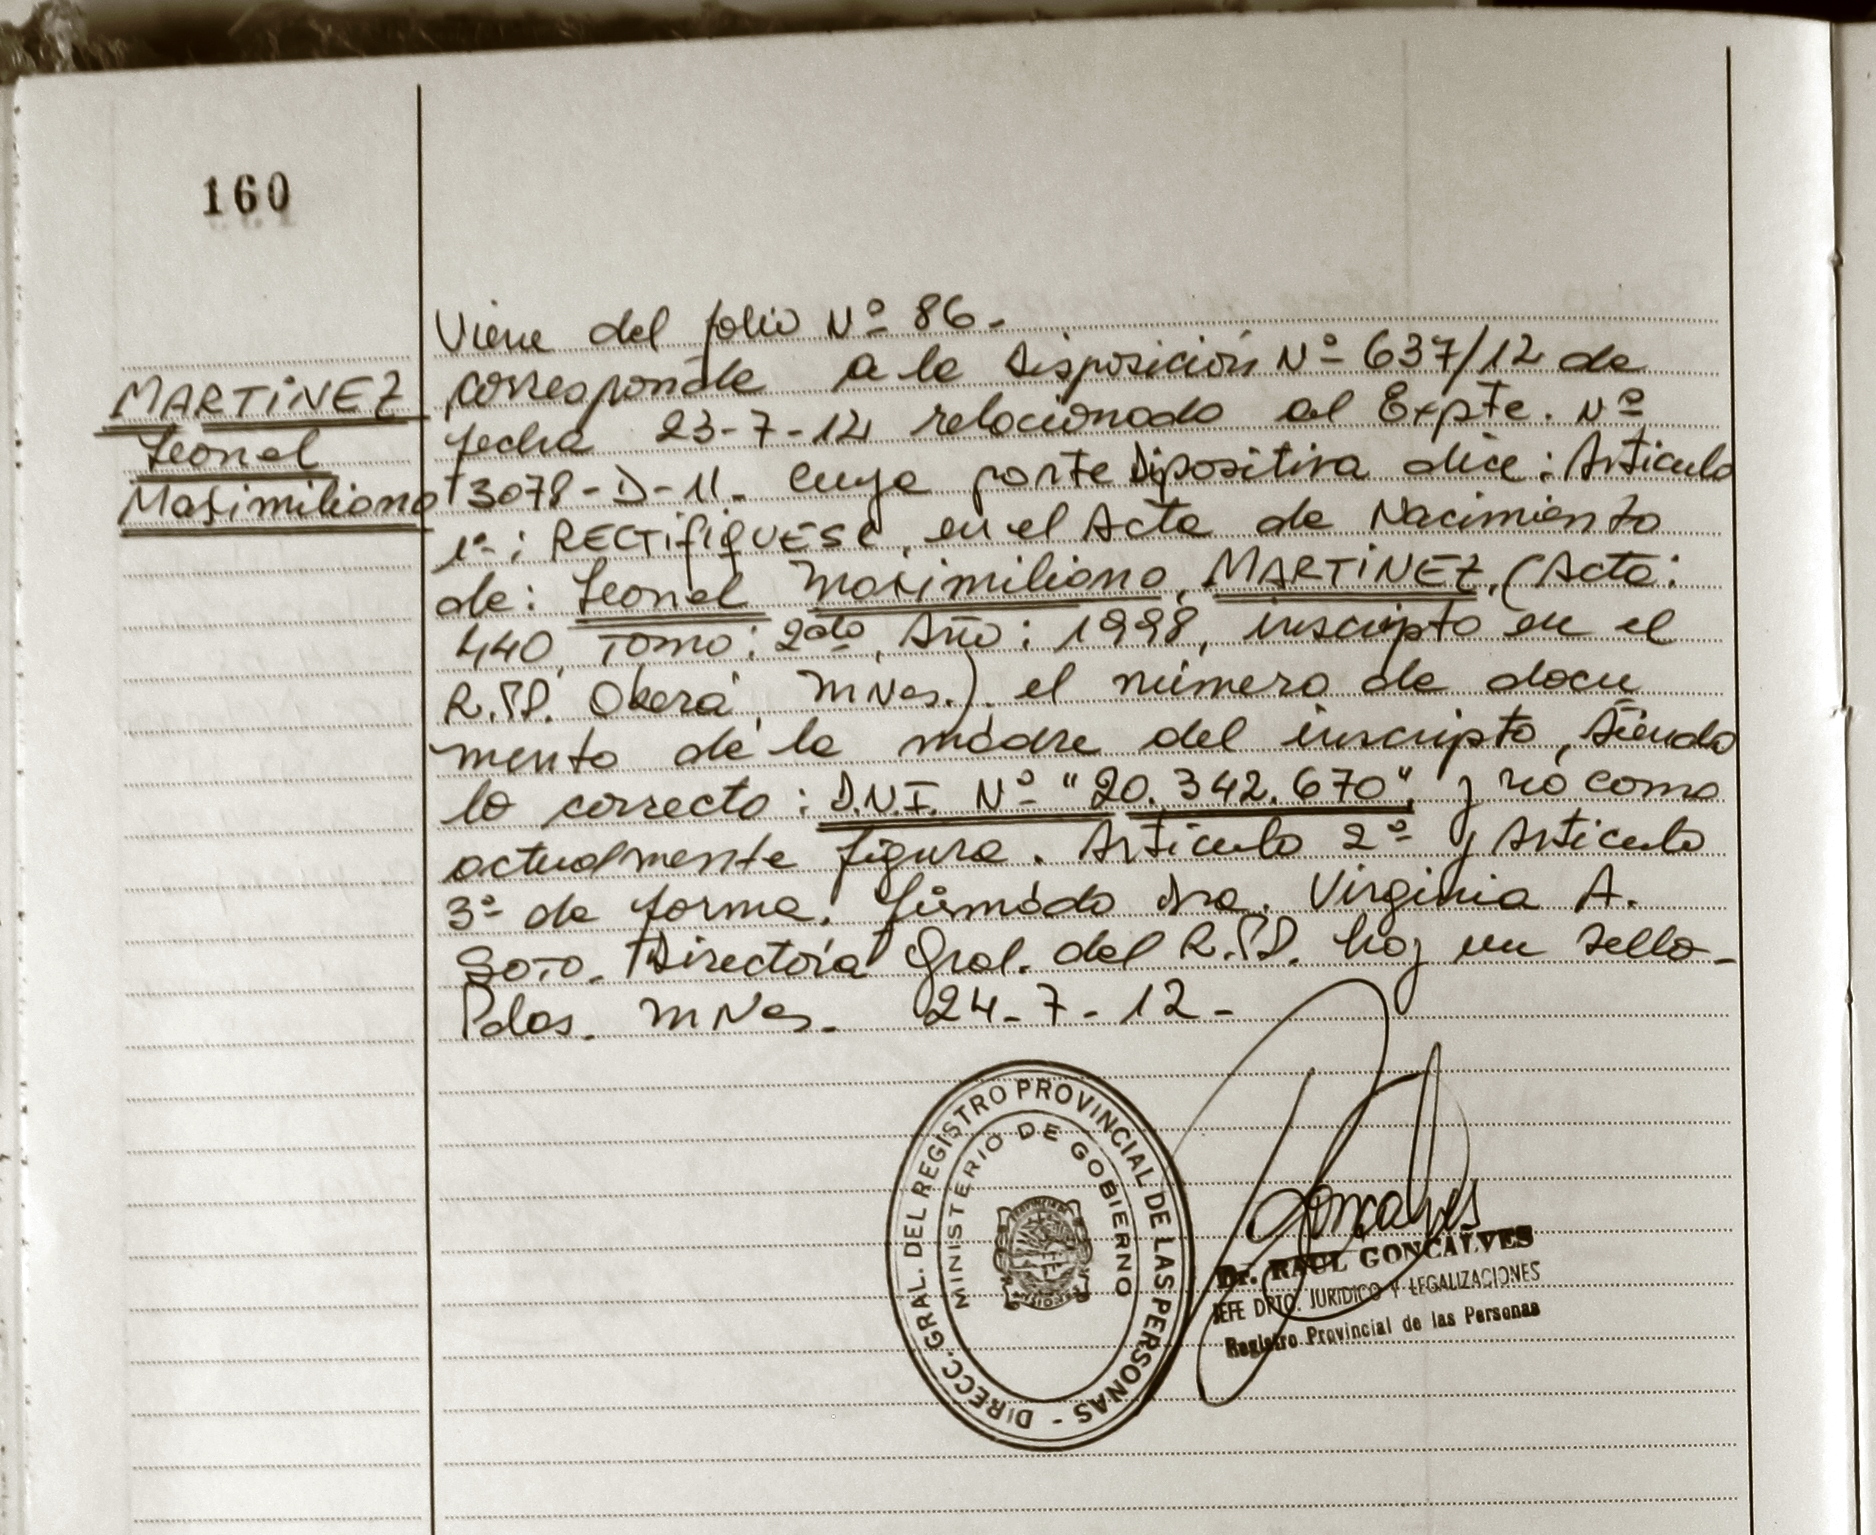 160
MARTiNEZ
Leonel
Maximiliano
Viene del folio Nº 86.
corresponde a la Disposición Nº 637/12 de
fecha 23-7-12 relacionado al Expte. Nº
3078-D-11. Cuya parte Dipositiva dice: Artículo
1º: RECTIFIQUESE, en el Acta de Nacimiento
de: Leonel Maximiliano, MARTiNEZ, (Acta:
440, Tomo: 2do, Año: 1998, inscripto en el
R.P.P. Oberá, MNes.). el número de docu
mento de la madre del inscripto, siendo
lo correcto: D.N.I. Nº "20.342.670" y nó como
actualmente figura. Artículo 2º y Artículo
3º de forma. firmado Dra. Virginia A.
Soto. Directora Gral. del R.P.P. hay un sello-
Pdas. MNes. 24-7-12-
DIRECC. GRAL. DEL REGISTRO PROVINCIAL DE LAS PERSONAS -
MINISTERIO DE GOBIERNO
Goncalves
Dr. RAUL GONCALVES
JEFE DPTO. JURIDICO Y LEGALIZACIONES
Registro Provincial de las Personas